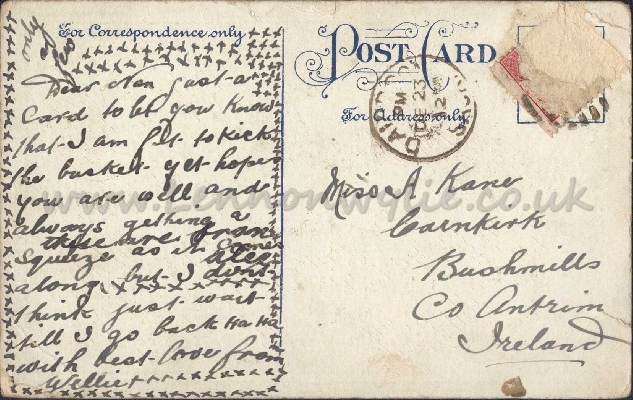 For Correspondence only
POST CARD
For Address only
only
a
few
Dear Nan just a
Card to let you know
that I am fit to kick
the bucket yet hopes
you are well and
always getting a
these are from
squeeze as it comes
Alec
along but I dont
think just wait
till I go back Ha Ha
with best love from
Wellie
PM
DE 23
Miss A Kane
Carnkirk
Bushmills
Co Antrim
Ireland
www.lennonwylie.co.uk